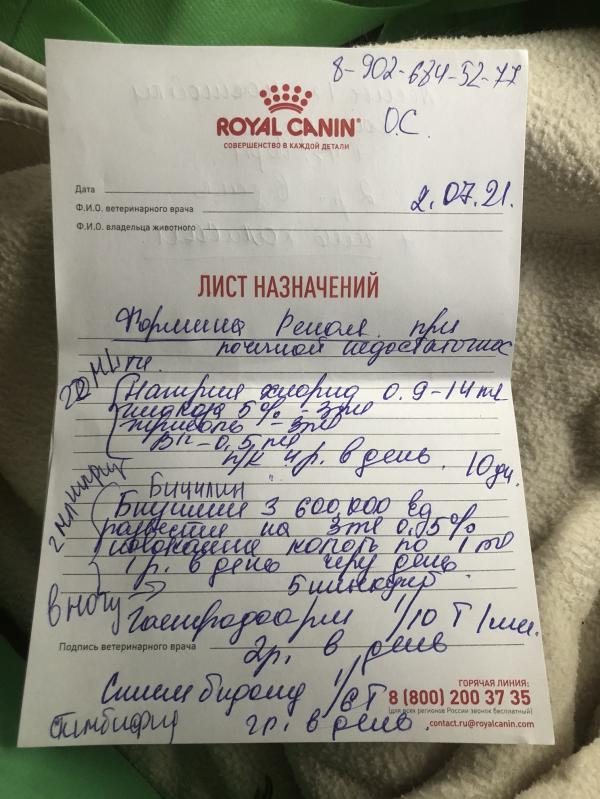 8-902-684-52-77
ROYAL CANIN
О.С.
СОВЕРШЕНСТВО В КАЖДОЙ ДЕТАЛИ
Дата
2.07.21.
Ф.И.О. ветеринарного врача
Ф.И.О. владельца животного
ЛИСТ НАЗНАЧЕНИЙ
Формина Ренал при
почечной недостаточнос
ти.
Натрия хлорид 0.9-14 мл
5% - 3 мл
- 3 мл
- 0,5 мл
п/к 1 р. в день. 10 дн.
Бициллин
Бициллин 3 600,000 ед
развести на 3 мл 0,5%
колоть по 1 мл
1 р. в день через день
5 инъекций
в ногу
/10 Т 1 мл.
Подпись ветеринарного врача
2 р. в день
ГОРЯЧАЯ ЛИНИЯ:
8 (800) 200 37 35
(для всех регионов России звонок бесплатный)
contact.ru@royalcanin.com
2 р. в день.